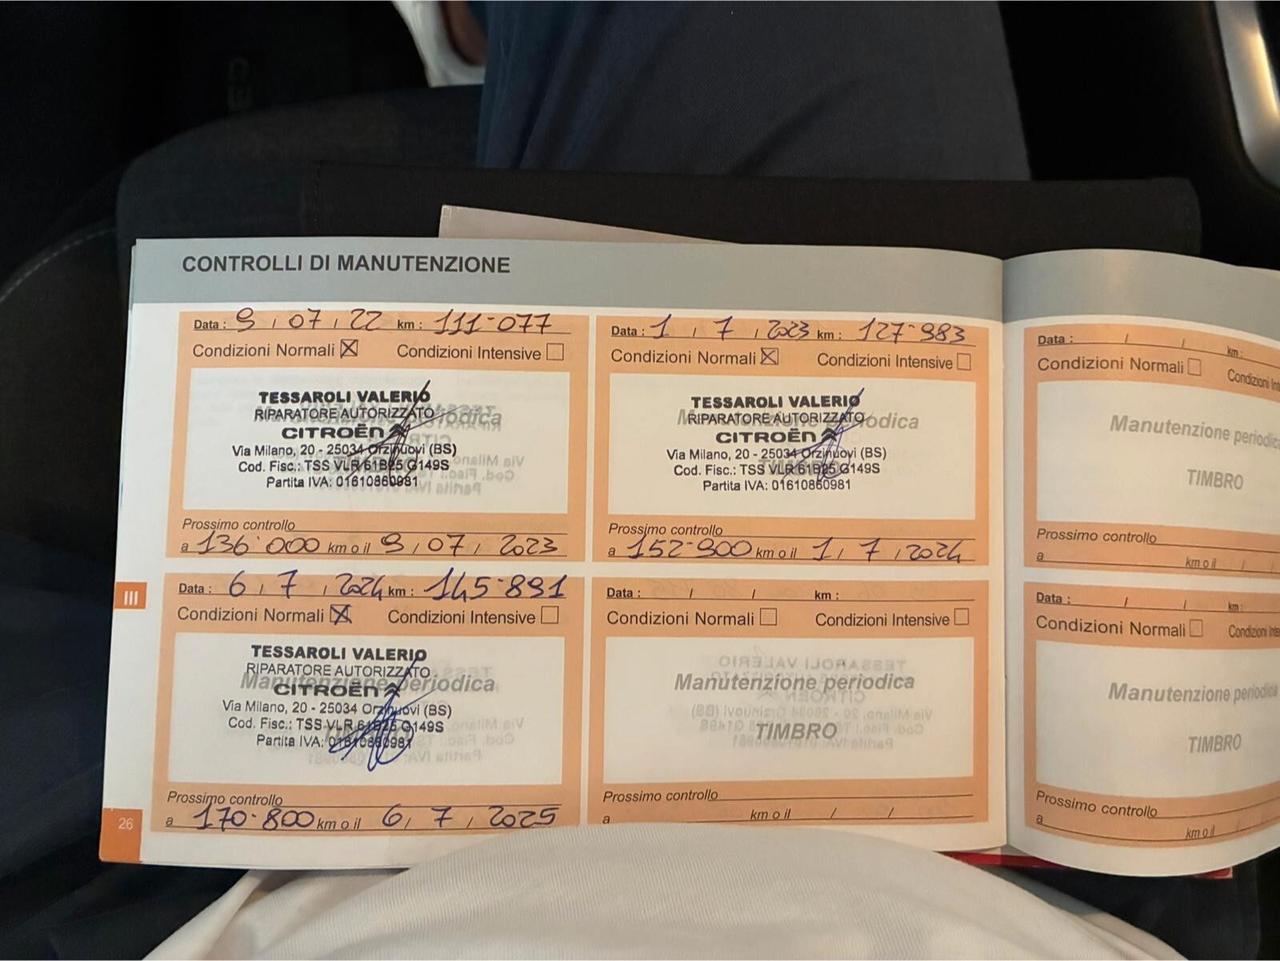 CONTROLLI DI MANUTENZIONE
Data : 9 / 07 / 22 km : 111·077
Condizioni Normali ☒ Condizioni Intensive ☐
TESSAROLI VALERIO
RIPARATORE AUTORIZZATO
Manutenzione periodica
CITROËN
Via Milano, 20 - 25034 Orzinuovi (BS)
Cod. Fisc.: TSS VLR 61B25 G149S
Partita IVA: 01610860981
Prossimo controllo
a 136·000 km o il 9 / 07 / 2023
Data : 1 / 7 / 2023 km : 127·983
Condizioni Normali ☒ Condizioni Intensive ☐
TESSAROLI VALERIO
RIPARATORE AUTORIZZATO
Manutenzione periodica
CITROËN
Via Milano, 20 - 25034 Orzinuovi (BS)
Cod. Fisc.: TSS VLR 61B25 G149S
Partita IVA: 01610860981
Prossimo controllo
a 152·900 km o il 1 / 7 / 2024
III
Data : 6 / 7 / 2024 km : 145·891
Condizioni Normali ☒ Condizioni Intensive ☐
TESSAROLI VALERIO
RIPARATORE AUTORIZZATO
Manutenzione periodica
CITROËN
Via Milano, 20 - 25034 Orzinuovi (BS)
Cod. Fisc.: TSS VLR 61B25 G149S
Partita IVA: 01610860981
Prossimo controllo
a 170·800 km o il 6 / 7 / 2025
Data : / / km :
Condizioni Normali ☐ Condizioni Intensive ☐
Manutenzione periodica
TIMBRO
Prossimo controllo
a km o il / /
26
Data : / / km :
Condizioni Normali ☐ Condizioni
Manutenzione
TIMBRO
Prossimo controllo
a km o il / /
Data : / / km :
Condizioni Normali ☐ Condizioni
Manutenzione
TIMBRO
Prossimo controllo
a km o il / /